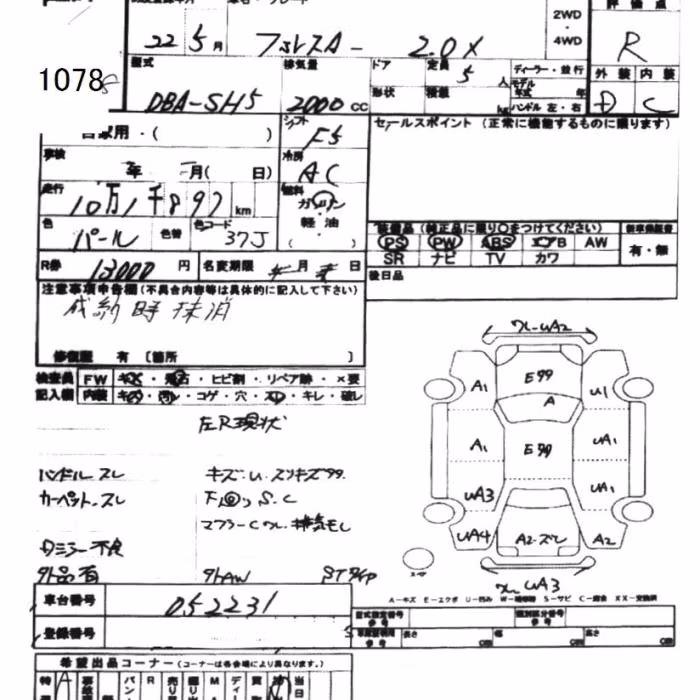 2WD
・
4WD
R
22 年 5 月
フォレスター 2.0X
1078
型式 排気量 ドア 定員 5 人 ディーラー・並行
外装 内装
DBA-SH5 2000 cc 形状 積載 kg ハンドル 左・右
D C
自家用・( )
シフト F5
セールスポイント (正常に機能するものに限ります)
車検 年 月( 日)
冷房 AC
走行 10万1千897 km
燃料 ガソリン・軽油
( )
色 パール 色替 色コード 37J
装備品 (純正品に限り○をつけてください) 新車保証書
PS PW ABS エアB AW 有・無
SR ナビ TV カワ
R券 13000 円 名変期限 月 日
後日品
注意事項申告欄(不具合内容等は具体的に記入して下さい)
成約時抹消
修復歴 有 〔箇所 〕
検査員 FW キズ・飛石・ヒビ割・リペア跡・×要
記入欄 内装 キズ・汚れ・コゲ・穴・スレ・キレ・破レ
左R現状
ハンドル スレ
カーペット スレ
キズ・U・スリキズ99
下回り S.C
マフラーCワレ・排気モレ
外品有 外AW
ワレ-UA2
A1 E99 U1
A
A1 E99 UA1
UA3 UA1
UA4 A2・ズレ A2
ワレ UA3
A-キズ E-エクボ U-凹み W-補修跡 S-サビ C-腐食 XX-交換済
車台番号 052231
登録番号
型式指定番号 類別区分番号
長さ cm 幅 cm 高さ cm
希望出品コーナー (コーナーは各会場により異なります。)